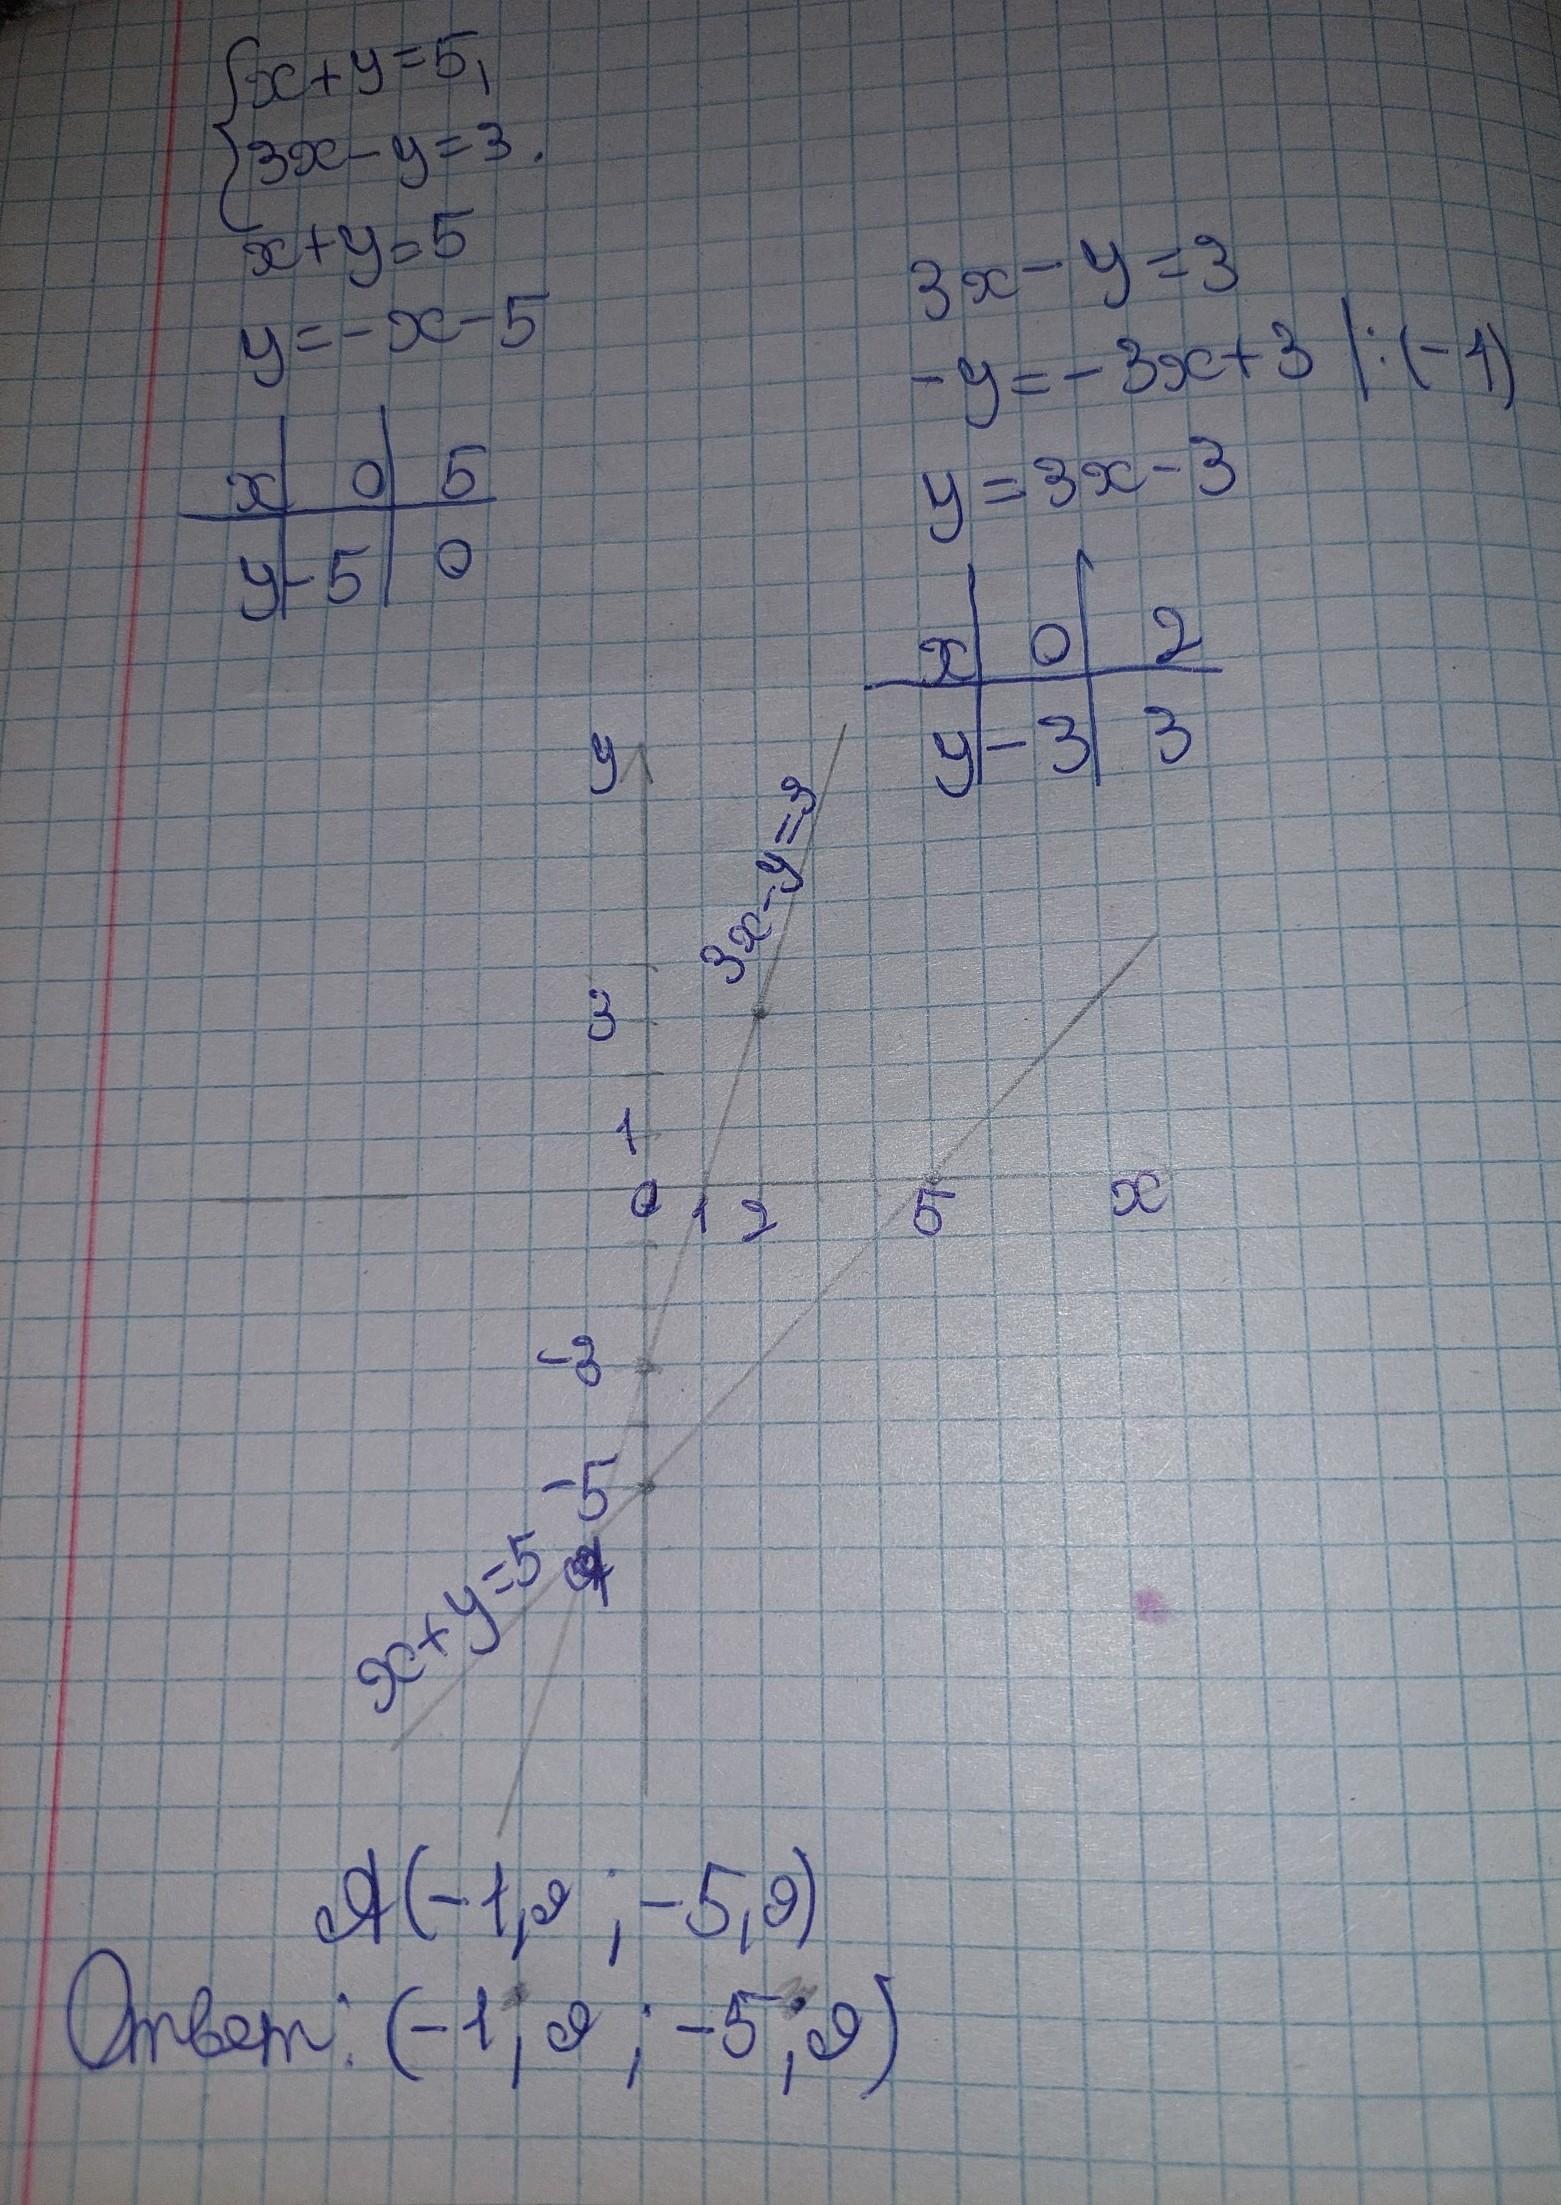 {x+y=5,
3x-y=3.
x+y=5
y=-x-5
x 0 5
y -5 0
3x-y=3
-y=-3x+3 |:(-1)
y=3x-3
x 0 2
y -3 3
y
3x-y=3
3
1
0 1 2 5 x
-3
-5
x+y=5
A(-1,9;-5,9)
Ответ: (-1,9;-5,9)